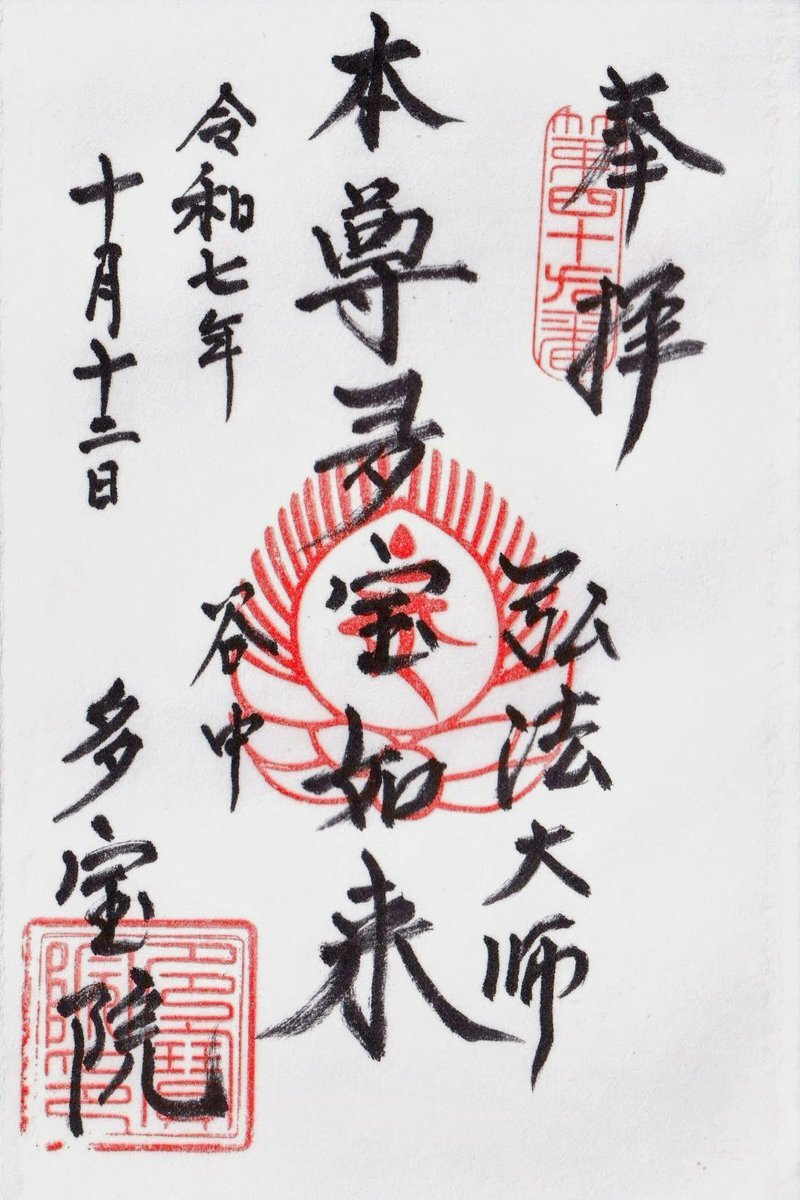 奉拝
第四十九番
弘法大师
本尊多宝如来
令和七年
十月十二日
谷中
多宝院